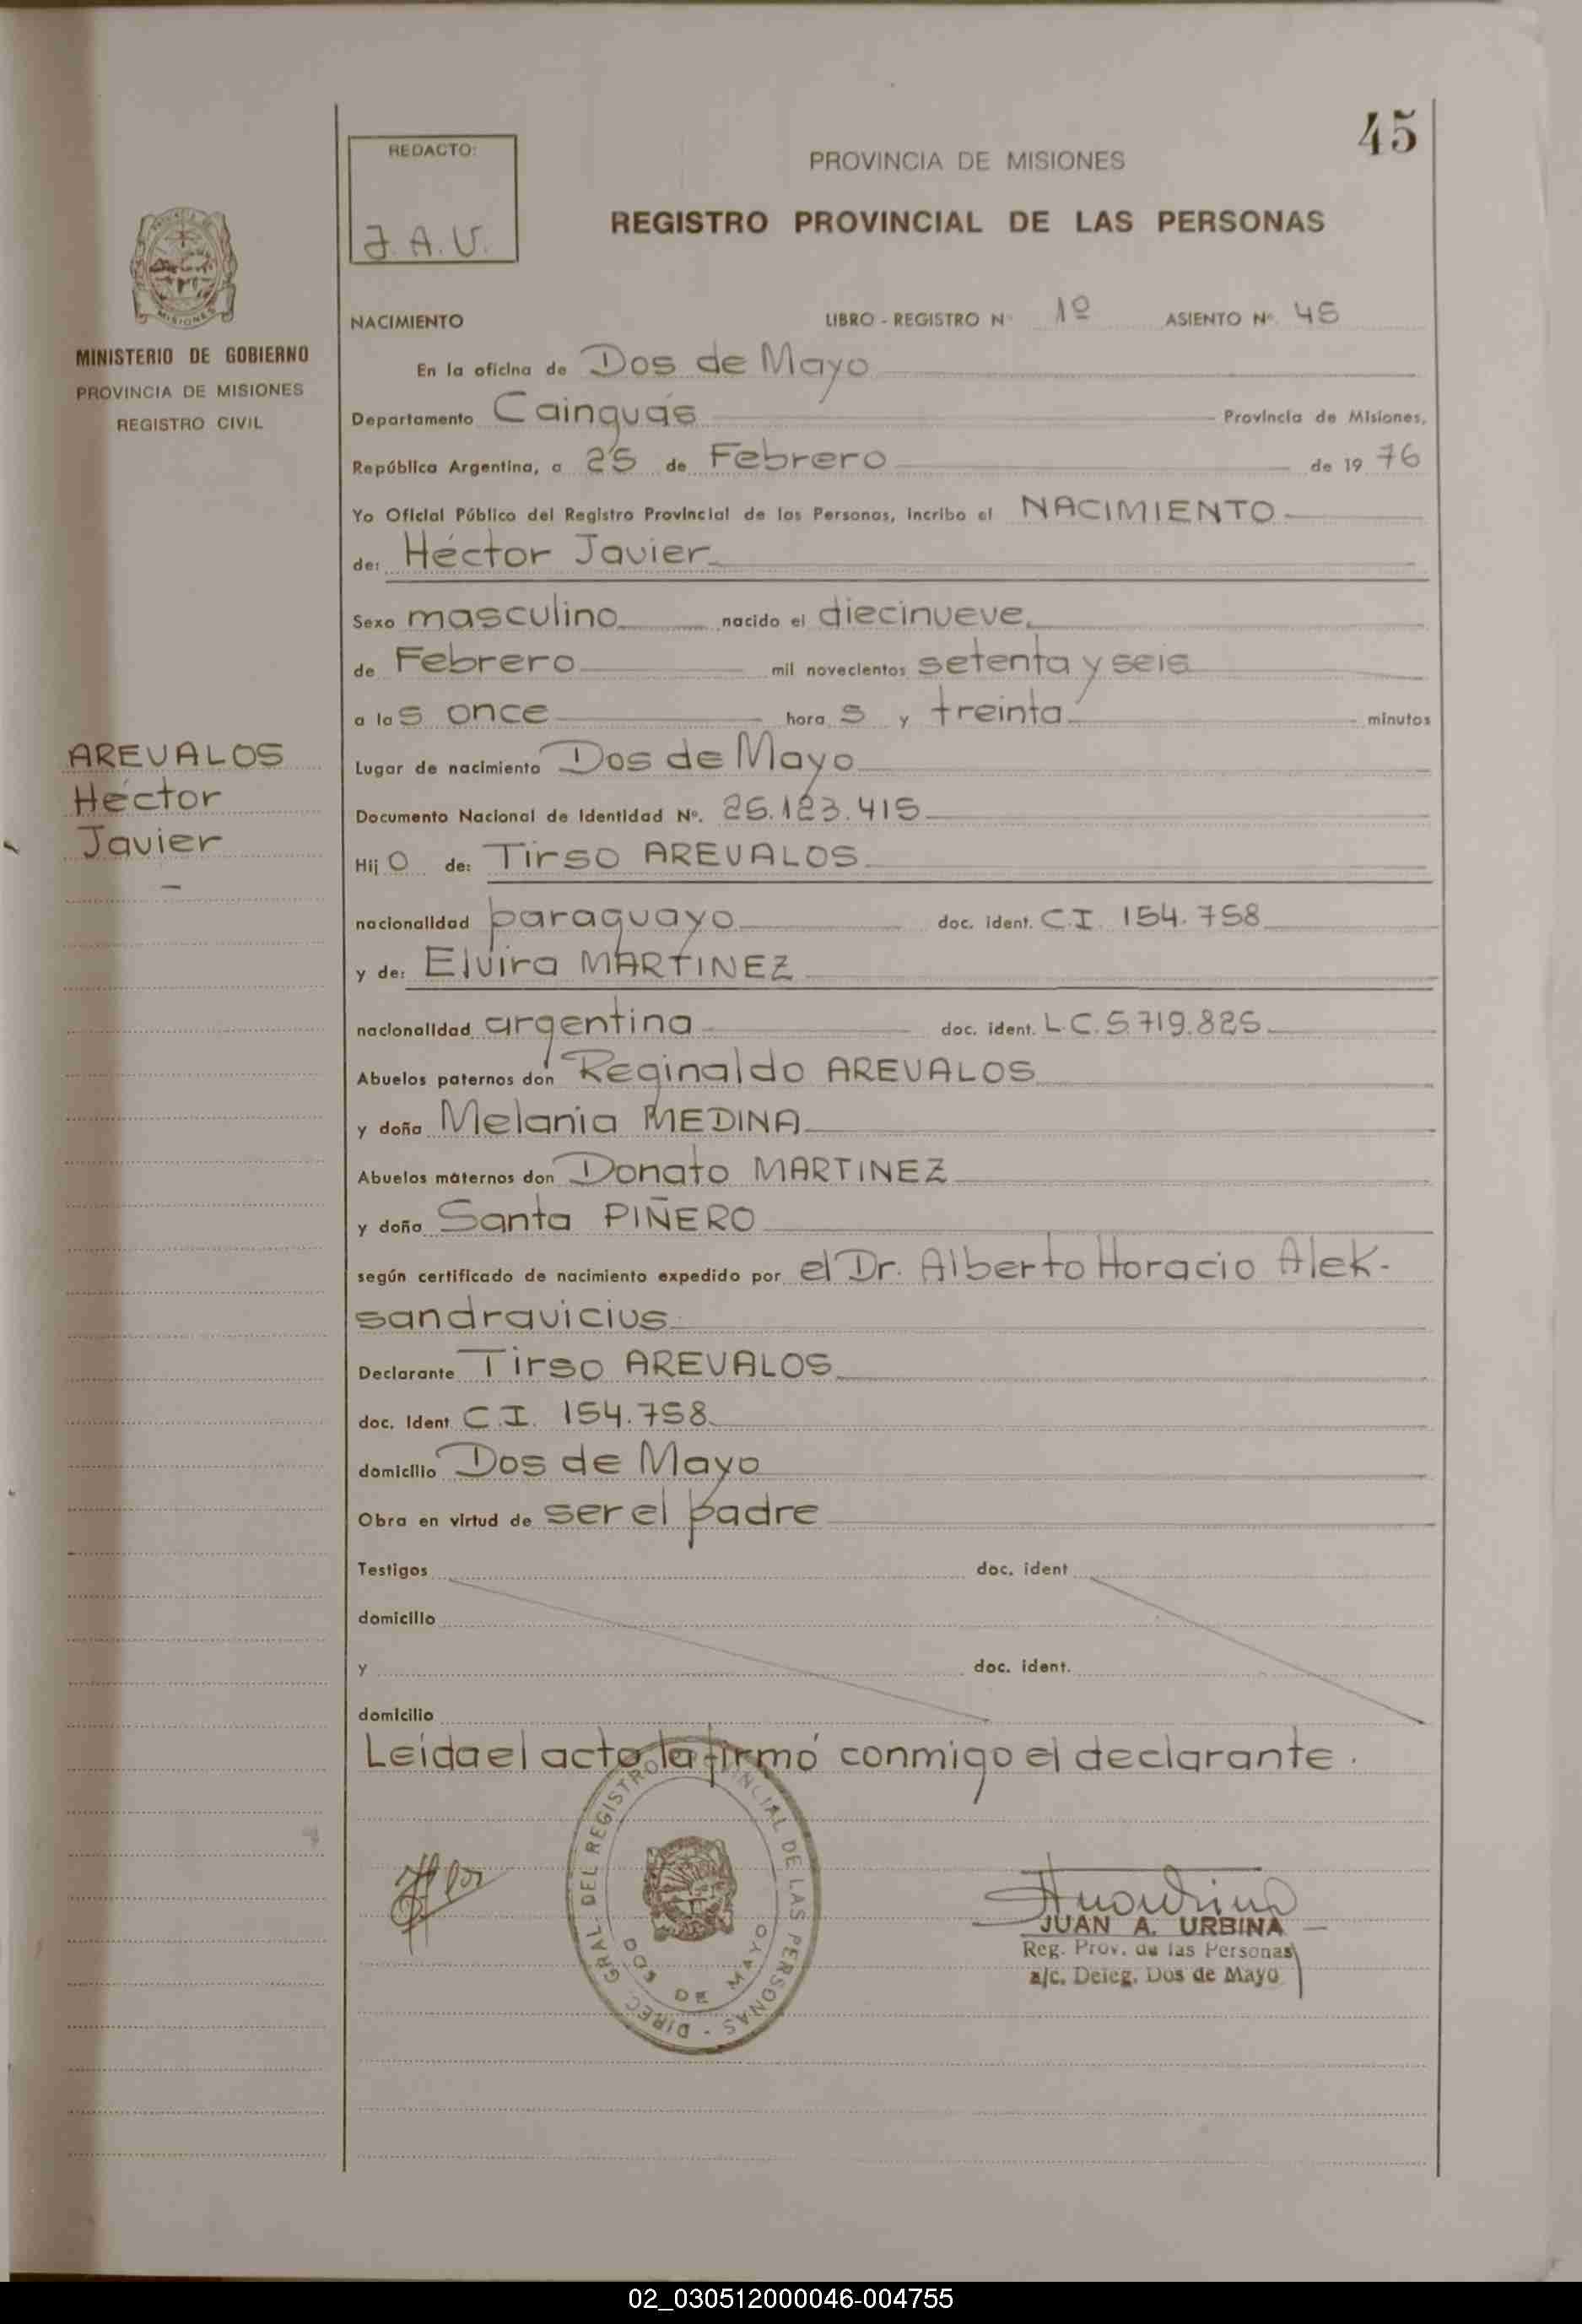 45
REDACTO:
J. A. U.
PROVINCIA DE MISIONES
REGISTRO PROVINCIAL DE LAS PERSONAS
MISIONES
MINISTERIO DE GOBIERNO
PROVINCIA DE MISIONES
REGISTRO CIVIL
NACIMIENTO LIBRO - REGISTRO Nº 1º ASIENTO Nº. 45
En la oficina de Dos de Mayo
Departamento Cainguás Provincia de Misiones,
República Argentina, a 25 de Febrero de 19 76
Yo Oficial Público del Registro Provincial de las Personas, incribo el NACIMIENTO
de: Héctor Javier
Sexo masculino nacido el diecinueve
de Febrero mil novecientos setenta y seis
a las once horas y treinta minutos
AREVALOS
Héctor
Javier
Lugar de nacimiento Dos de Mayo
Documento Nacional de Identidad Nº. 25.123.415
Hijo de: Tirso AREVALOS
nacionalidad paraguayo doc. ident. C.I. 154.758
y de: Elvira MARTINEZ
nacionalidad argentina doc. ident. L.C. 5.719.825
Abuelos paternos don Reginaldo AREVALOS
y doña Melania MEDINA
Abuelos maternos don Donato MARTINEZ
y doña Santa PIÑERO
según certificado de nacimiento expedido por el Dr. Alberto Horacio Alek-
sandravicius
Declarante Tirso AREVALOS
doc. Ident C.I. 154.758
domicilio Dos de Mayo
Obra en virtud de ser el padre
Testigos doc. ident
domicilio
y doc. ident.
domicilio
Leída el acto la firmó conmigo el declarante.
DIREC. GRAL DEL REGISTRO PROVINCIAL DE LAS PERSONAS -
DOS DE MAYO
JUAN A. URBINA
Reg. Prov. de las Personas
a/c. Deleg. Dos de Mayo
02_030512000046-004755